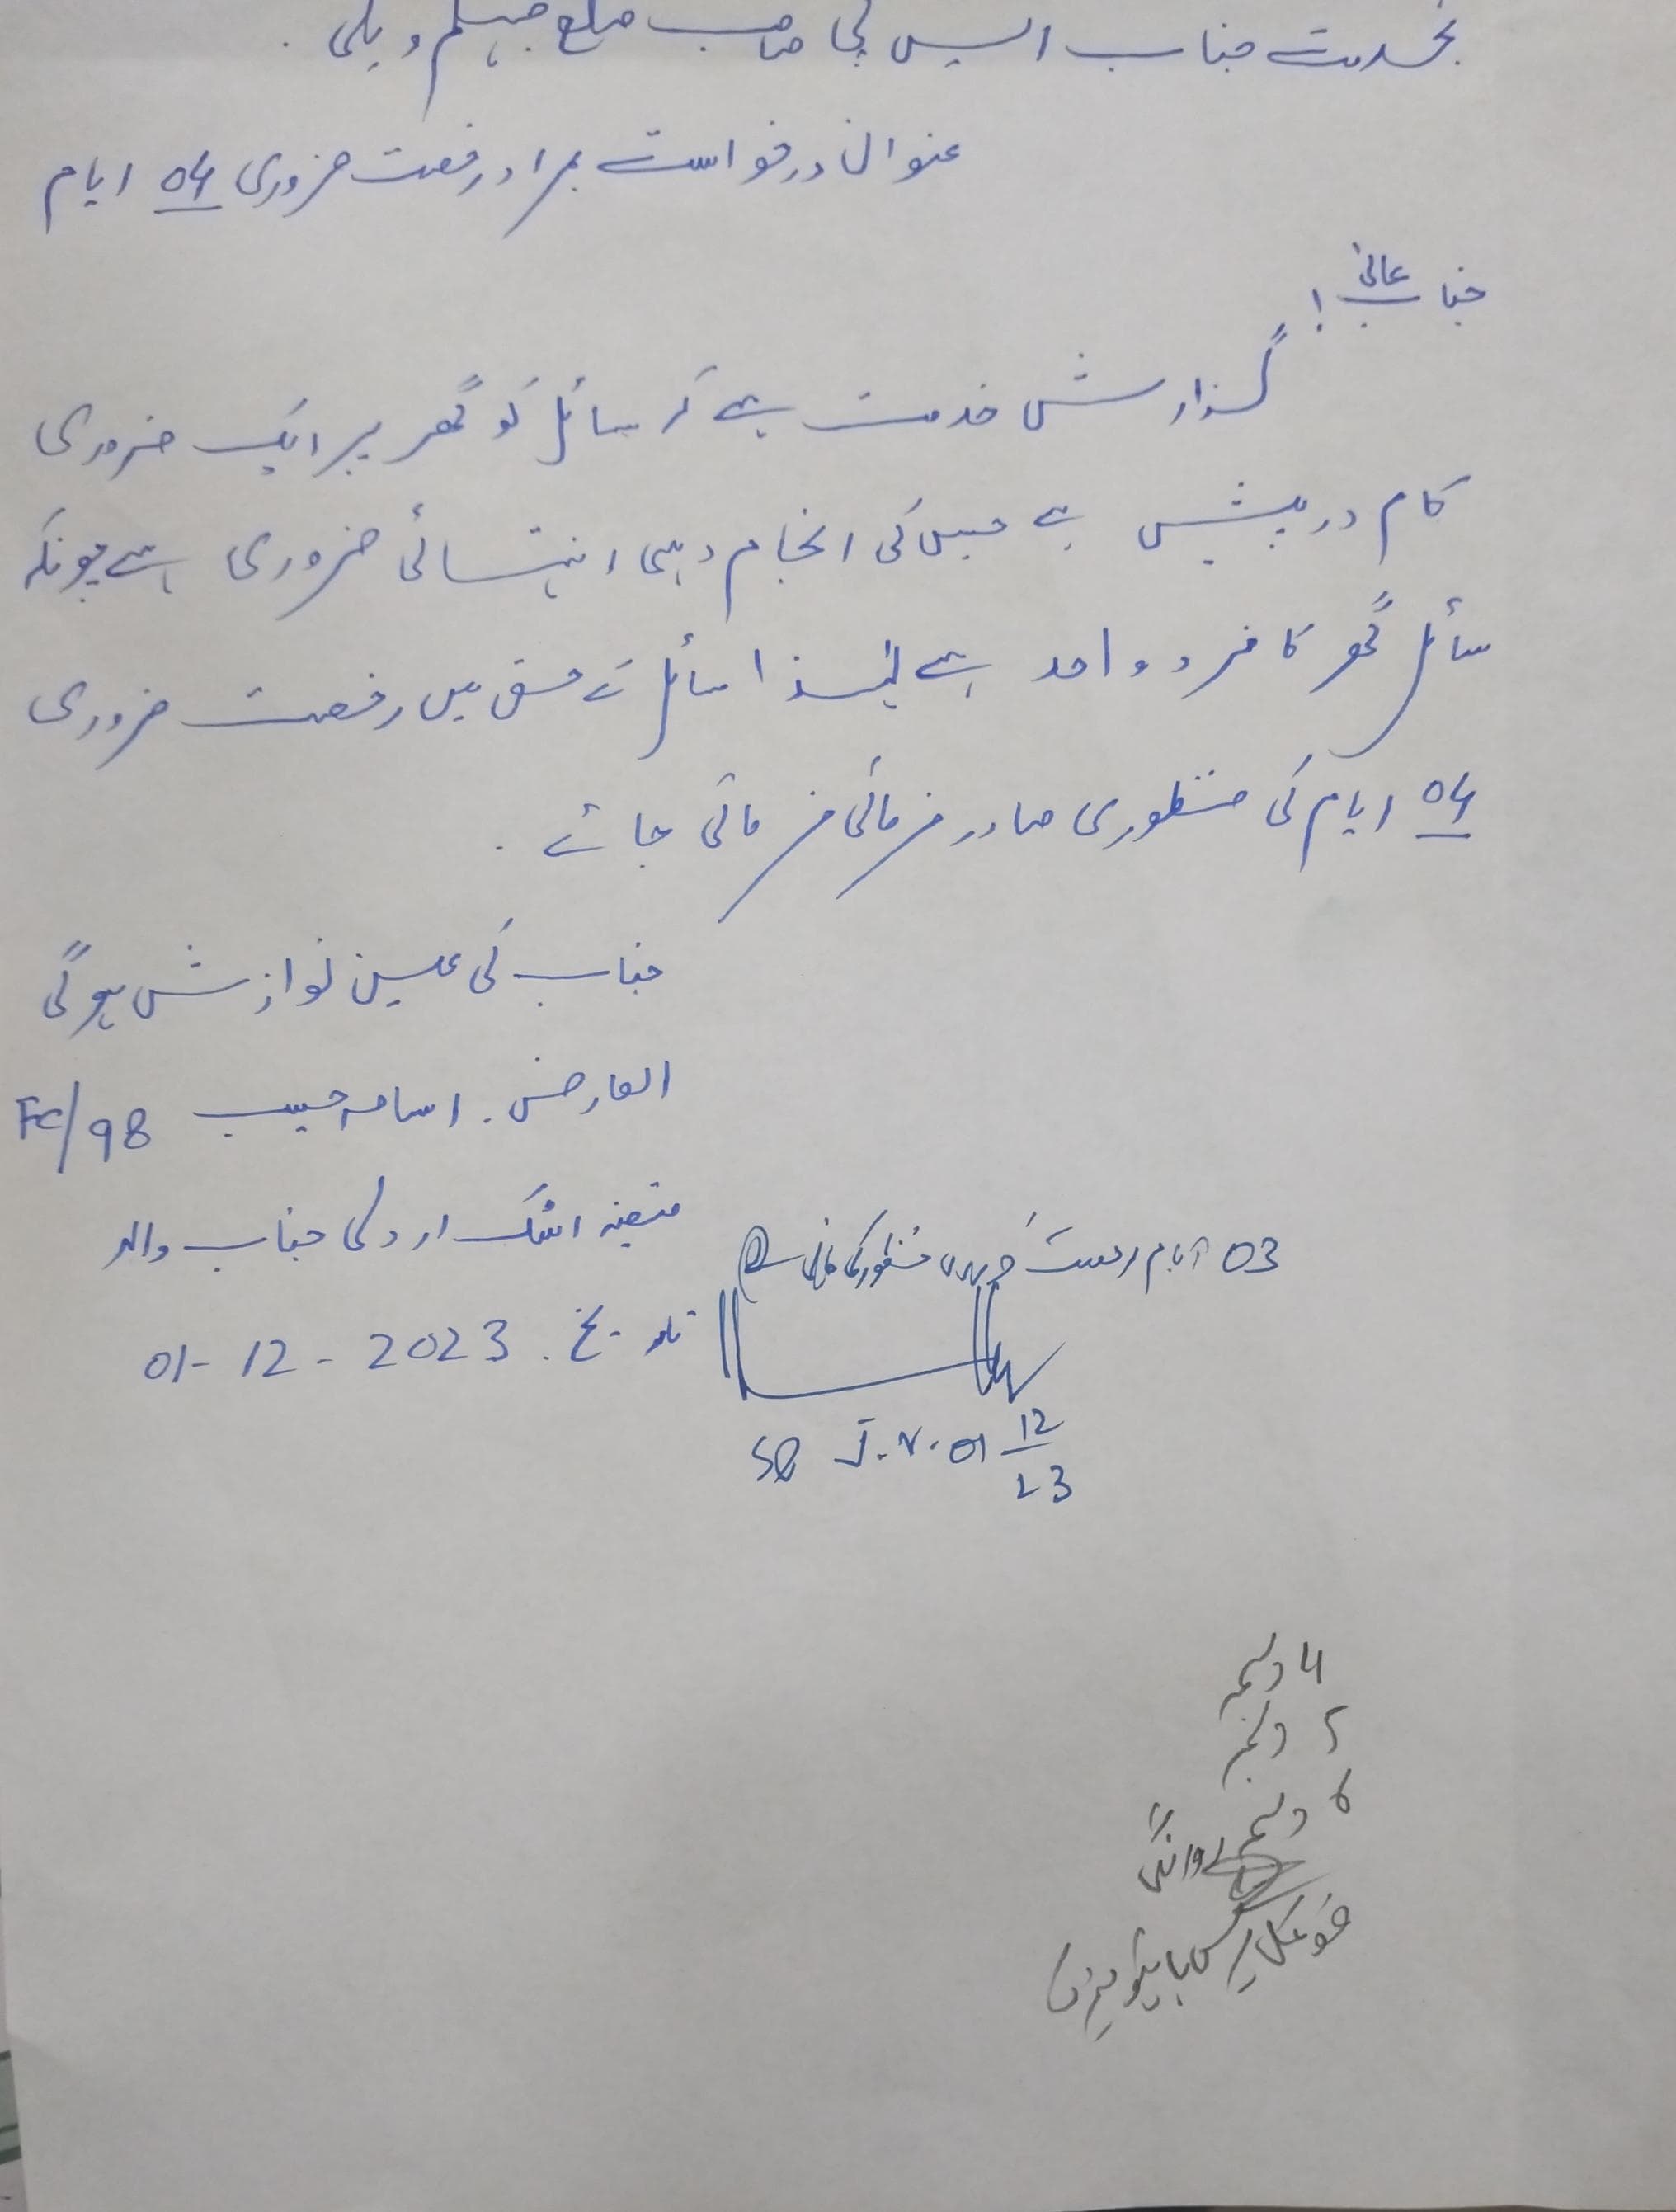 بخدمت جناب ایس پی صاحب ضلع جہلم ویلی .
عنوان درخواست بمراد رخصت ضروری 04 ایام
جناب عالی !
گزارش خدمت ہے کہ سائل کو گھر پر ایک ضروری
کام درپیش ہے جس کی انجام دہی انتہائی ضروری ہے چونکہ
سائل گھر کا فرد واحد ہے لہذا سائل کے حق میں رخصت ضروری
04 ایام کی منظوری صادر فرمائی فرمائی جائے .
جناب کی عین نوازش ہوگی
العارض . اسامہ حبیب FC/98
متعینہ جناب والا
03 ایام رخصت منظور کی جاتی ہے
تاریخ . 01-12-2023
SP J.V. 01 12/23
4 دسمبر
5 دسمبر
6 دسمبر روانگی